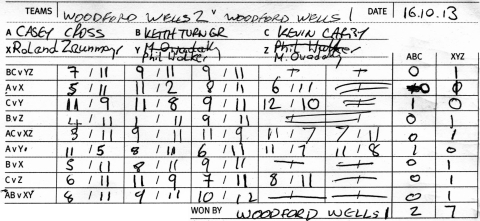 TEAMS WOODFORD WELLS 2 v WOODFORD WELLS 1 DATE 16.10.13
A CASEY CROSS B KEITH TURNER C KEVIN CARBY
X Roland Y Phil Walker Z M. Ovadaly
ABC XYZ
BC v YZ 7 / 11 9 / 11 9 / 11 0 1
A v X 5 / 11 11 / 2 8 / 11 6 / 11 0 0
C v Y 11 / 9 11 / 8 9 / 11 12 / 10 1 0
B v Z 4 / 11 1 / 11 0 / 11 0 1
AC v XZ 3 / 11 9 / 11 11 / 9 11 / 7 7 / 11 0 1
A v Y 11 / 5 8 / 11 6 / 11 11 / 7 11 / 8 1 0
B v X 5 / 11 8 / 11 9 / 11 0 1
C v Z 6 / 11 11 / 9 7 / 11 8 / 11 0 1
AB v XY 8 / 11 9 / 11 10 / 12 0 1
WON BY WOODFORD WELLS 1 2 7